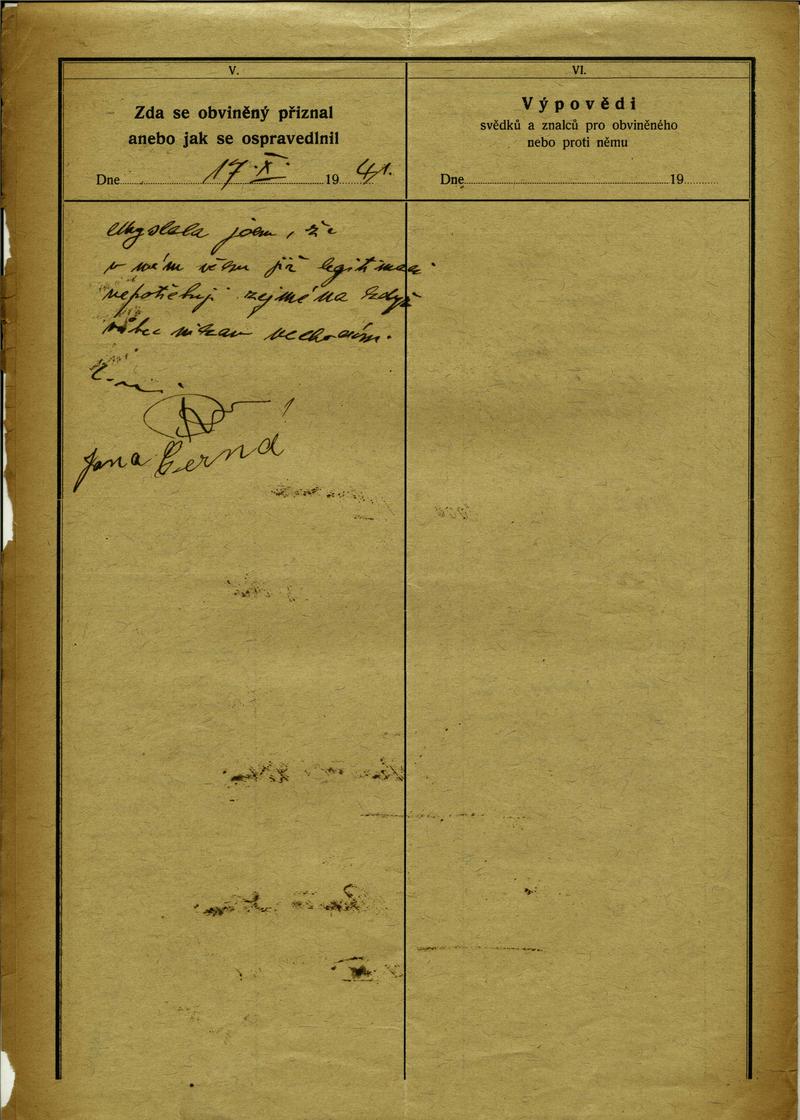 V.
Zda se obviněný přiznal
anebo jak se ospravedlnil
Dne 17.X. 1941.
Myslela jsem, že
v mém věku již legitimaci
nepotřebuji zejména když
vůbec nikam nechodím.
Jana Černá
VI.
Výpovědi
svědků a znalců pro obviněného
nebo proti němu
Dne 19